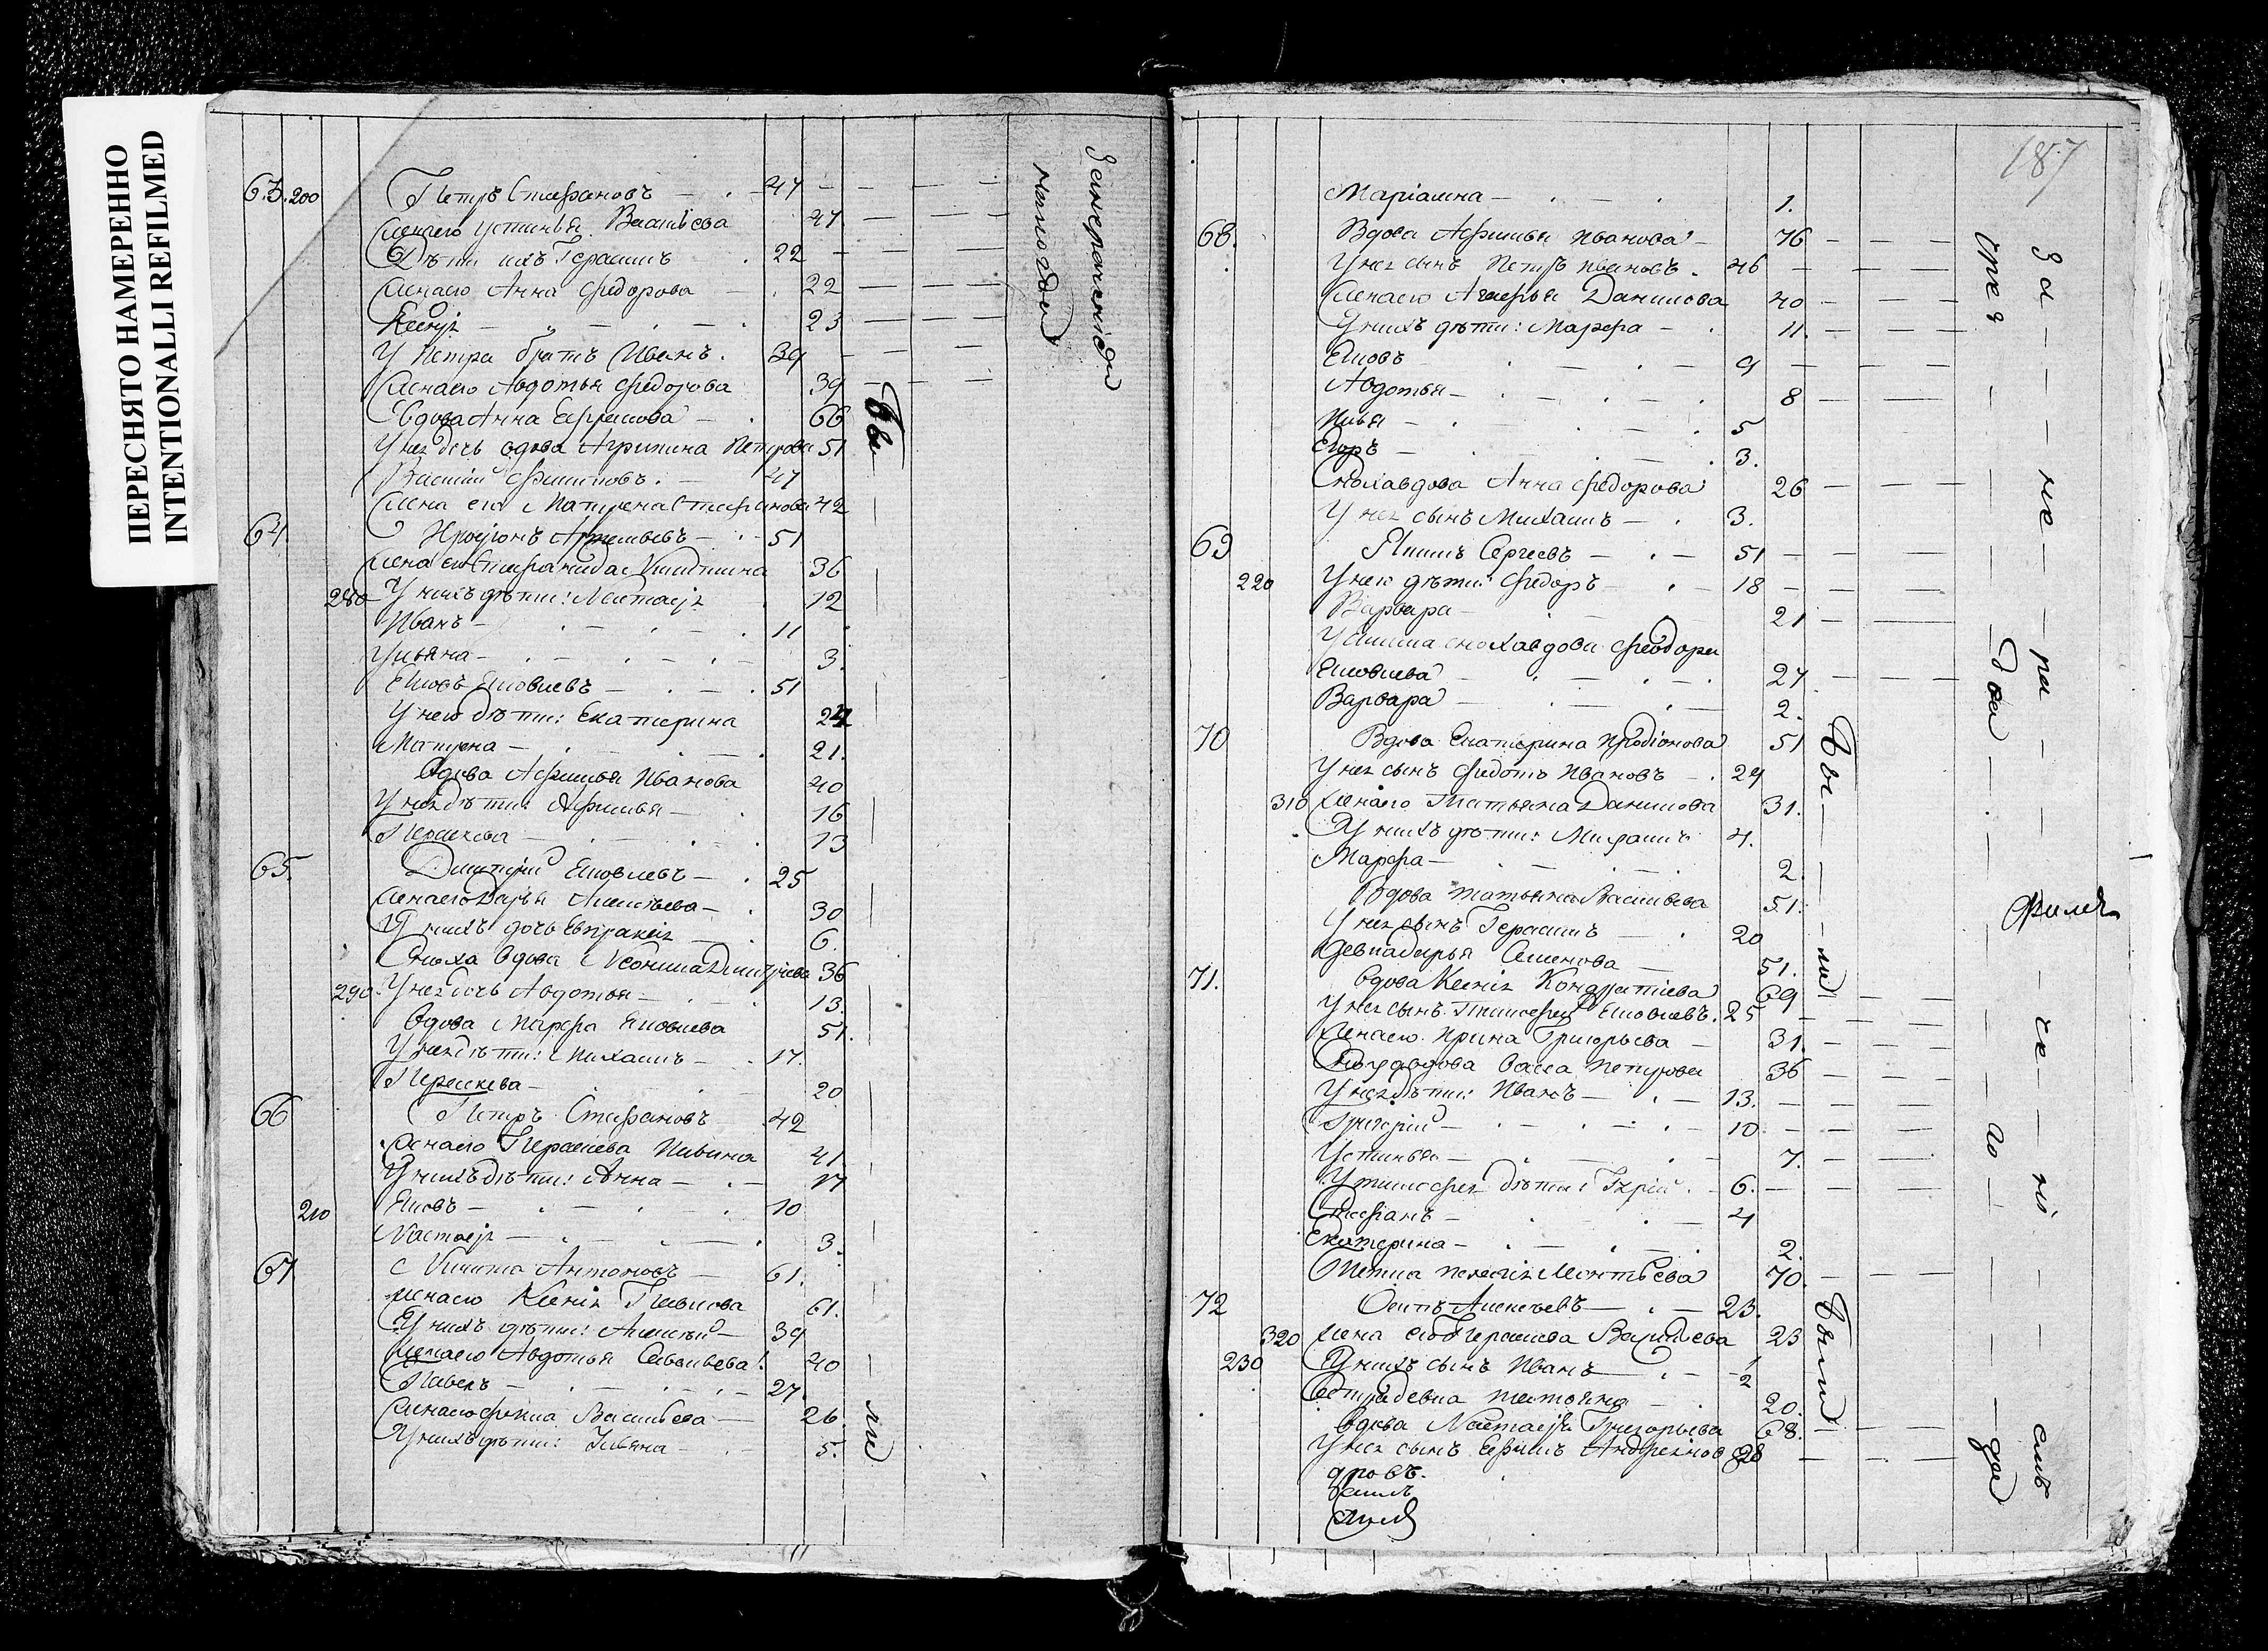 ПЕРЕСНЯТО НАМЕРЕННО
INTENTIONALLI REFILMED
63. 200 Петръ Стефановъ 47
Жена его Устинья Васильева 47
Дѣти ихъ Герасимъ 22
Жена его Анна Федорова 22
Ксенія 23
У Петра братъ Иванъ. 39
Жена его Авдотья Федорова 39
Вдова Анна Ефремова 66
У нея дочь вдова Агрипина Петрова 51
Василий Филиповъ. 47
Жена его Матрена Стефанова 42
64 Иродіонъ Артемьевъ 51
Жена его Степанида Никитина 36
280 У нихъ дѣти: Настасья 12
Иванъ 11
Ульяна 3.
Яковъ Яковлевъ 51
У него дѣти: Екатерина 24
Матрена 21.
Вдова Афимья Иванова 40
У нея дѣти: Афимья 16
Парасковья 13
65. Дмитрій Яковлевъ 25
Жена его Дарья Алексѣева 30
У нихъ дочь Евпраксія 6.
Сноха вдова Дмитріева 36
290. У нея дочь Авдотья 13.
Вдова Марфа Яковлева 51.
У нея дѣти: Михаилъ 17.
Парасковья 20
66 Петръ Стефановъ 42
Жена его 41
У нихъ дѣти: Анна 17
210 Яковъ 10
Настасья 3.
67 Никита Антоновъ 61.
Жена его Ксенія Павлова 61.
У нихъ дѣти: Алексѣй 39
Жена его Авдотья Савельева 40
Павелъ 27.
Жена его Фекла Васильева 26.
У нихъ дѣти: Ульяна 5.
бы
ли
за нераченіем
никогда
187
Маріамна 1.
68. Вдова Афимья Иванова 76
У нея сынъ Петръ Ивановъ. 46
Жена его Агафья Данилова 40
У нихъ дѣти: Марфа 11.
Яковъ 9
Авдотья 8
Илья 5
Егоръ 3.
Сноха вдова Анна Федорова 26
У нея сынъ Михаилъ 3.
69 Сергеевъ 51
220 У него дѣти: Федоръ 18
Варвара 21
сноха вдова Федора
Яковлева 27
Варвара 2.
70 Вдова Екатерина Иродіонова 51
У нея сынъ Федотъ Ивановъ 29
310 Жена его Татьяна Данилова 31.
У нихъ дѣти: Михаилъ 4.
Марфа 2.
Вдова Татьяна Васильева 51.
У нея сынъ Герасимъ 20
Девка Дарья Семенова 51.
71. Вдова Ксенія Кондратіева 69
У нея сынъ Тимофей Яковлевъ. 25
Жена его Ирина Григорьева 31.
Сноха вдова Васса Петрова 36
У нея дѣти: Иванъ 13.
Григорій 10
Устинья 7.
У Тимофея дѣти: 6.
Стефанъ 4
Екатерина 2.
Тетка Пелагія Леонтьева 70.
72 Осипъ Алексѣевъ 23.
320 Жена его Парасковья Васильева 23
230 У нихъ сынъ Иванъ 1/2
Сестра девка Татьяна 20.
Вдова Настасья Григорьева 68.
У нея сынъ Ефимъ 28
бы
ли
были
за не ра че ні емъ
чрез два го да